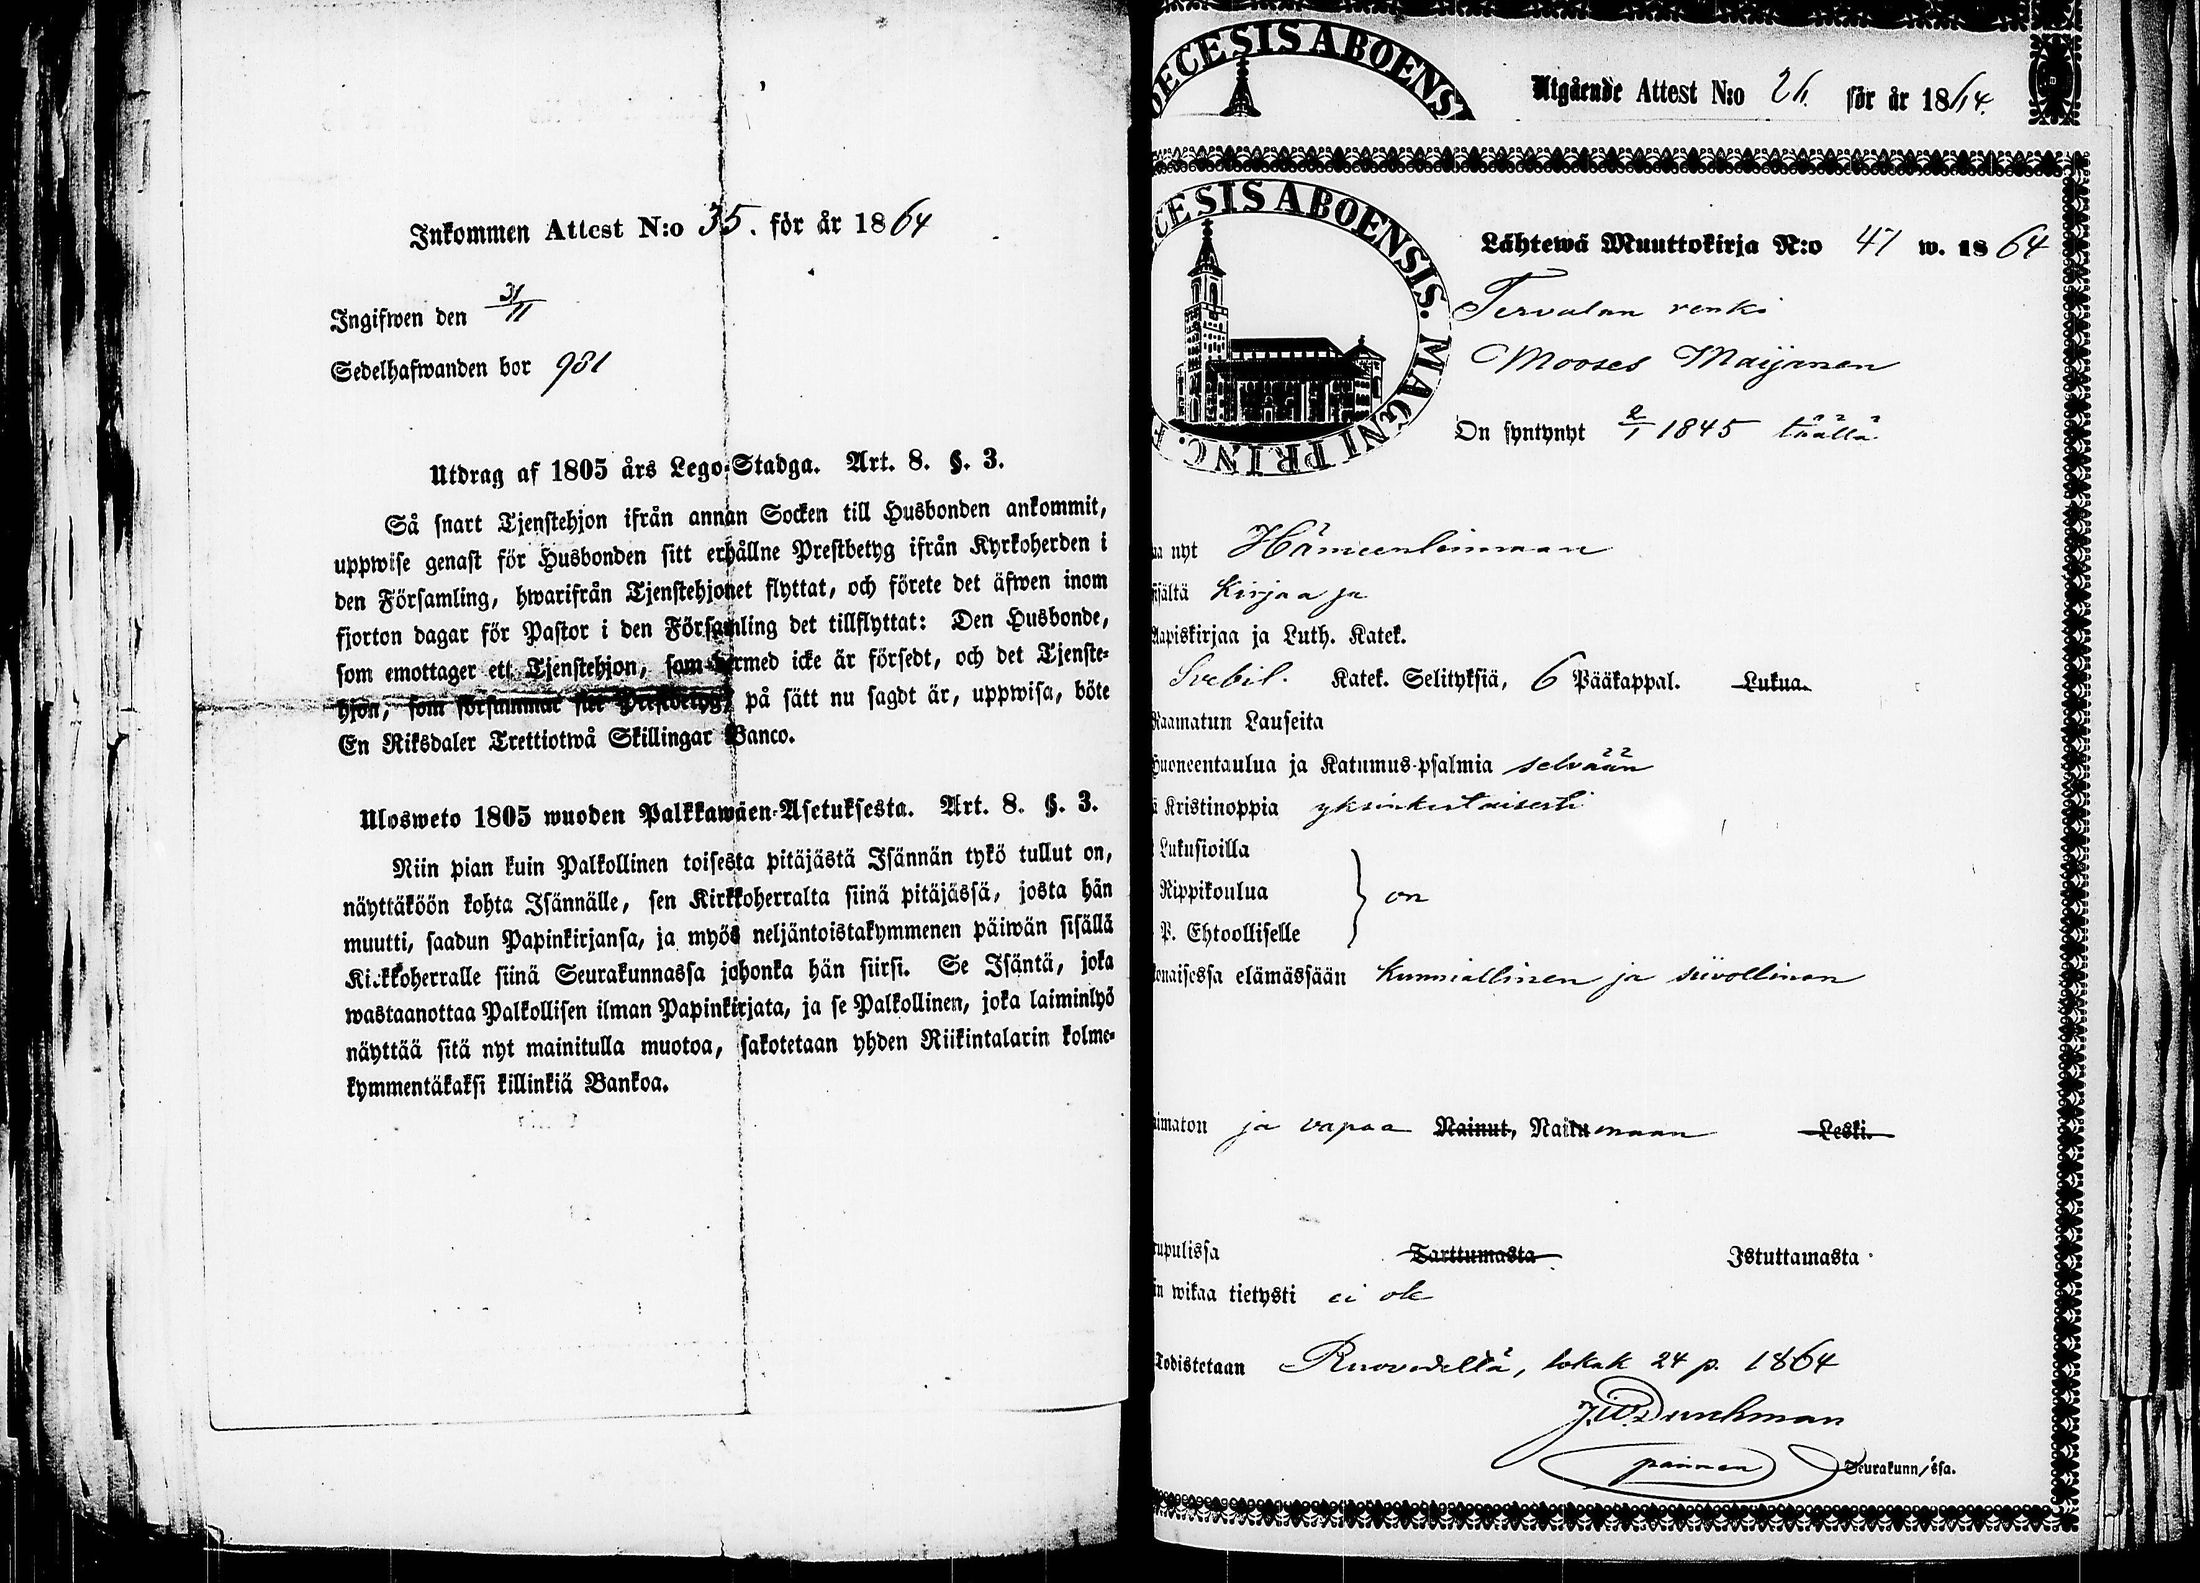 Inkommen Attest N:o 35. för år 1864
Ingifwen den 31/11
Sedelhafwanden bor 981
Utdrag af 1805 års Lego-Stadga. Art. 8. §. 3.
Så snart Tjenstehjon ifrån annan Socken till Husbonden ankommit,
uppwise genast för Husbonden sitt erhållne Prestbetyg ifrån Kyrkoherden i
den Församling, hwarifrån Tjenstehjonet flyttat, och förete det äfwen inom
fjorton dagar för Pastor i den Församling det tillflyttat: Den Husbonde,
som emottager ett Tjenstehjon, som härmed icke är försedt, och det Tjenste-
hjon, som försummar sitt Prestbetyg, på sätt nu sagdt är, uppwisa, böte
En Riksdaler Trettiotwå Skillingar Banco.
Ulosweto 1805 wuoden Palkkawäen-Asetuksesta. Art. 8. §. 3.
Niin pian kuin Palkollinen toisesta pitäjästä Isännän tykö tullut on,
näyttäköön kohta Isännälle, sen Kirkkoherralta siinä pitäjässä, josta hän
muutti, saadun Papinkirjansa, ja myös neljäntoistakymmenen päiwän sisällä
Kirkkoherralle siinä Seurakunnassa johonka hän siirsi. Se Isäntä, joka
wastaanottaa Palkollisen ilman Papinkirjata, ja se Palkollinen, joka laiminlyö
näyttää sitä nyt mainitulla muotoa, sakotetaan yhden Riikintalarin kolme-
kymmentäkaksi killinkiä Bankoa.
DECESIS ABOENS
Utgående Attest N:o 26. för år 1864.
CESIS ABOENSIS. MAGNI PRINC. F
Lähtewä Muuttokirja N:o 47 w. 1864
Tervalan renki
Mooses Maijanen
On syntynyt 2/1 1845 täällä
aa nyt Hämeenlinnaan
isältä kirjaa ja
Aapiskirjaa ja Luth. Katek.
Svebil. Katek. Selityksiä, 6 Pääkappal. Lukua.
Raamatun Lauseita
Huoneentaulua ja Katumus-psalmia selvään
Kristinoppia yksinkertaisesti
Lukusioilla
Rippikoulua } on
P. Ehtoolliselle
onaisessa elämässään kunniallinen ja siivollinen
aimaton ja vapaa Nainut, Naitumaan Leski.
rupulissa Tarttumasta Istuttamasta
in wikaa tietysti ei ole
Todistetaan Ruovedellä, lokak 24 p. 1864
J.W. Durchman
Seurakunn/ssa.